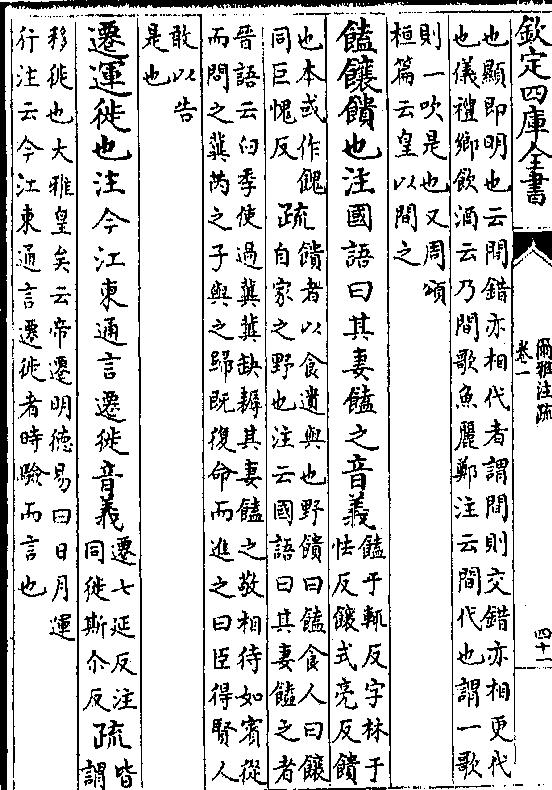 欽定四庫全書
爾雅注疏
卷一
四十一
也顯即明也云間錯亦相代者謂間則交錯亦相更代
也儀禮鄉飲酒云乃間歌魚麗鄭注云間代也謂一歌
則一吹是也又周頌
桓篇云皇以間之
饁饟饋也注國語曰其妻饁之音義
饁于輒反字林于
怯反饟式亮反饋
也本或作餽
同巨愧反
疏
饋者以食遺與也野饋曰饁食人曰饟
自家之野也注云國語曰其妻饁之者
晉語云臼季使過冀冀缺耨其妻饁之敬相待如賓從
而問之冀芮之子與之歸既復命而進之曰臣得賢人
敢以告
是也
遷運徙也注今江東通言遷徙音義
遷七延反注
同徙斯尒反
疏
皆
謂
移徙也大雅皇矣云帝遷明德易曰日月運
行注云今江東通言遷徙者時驗而言也